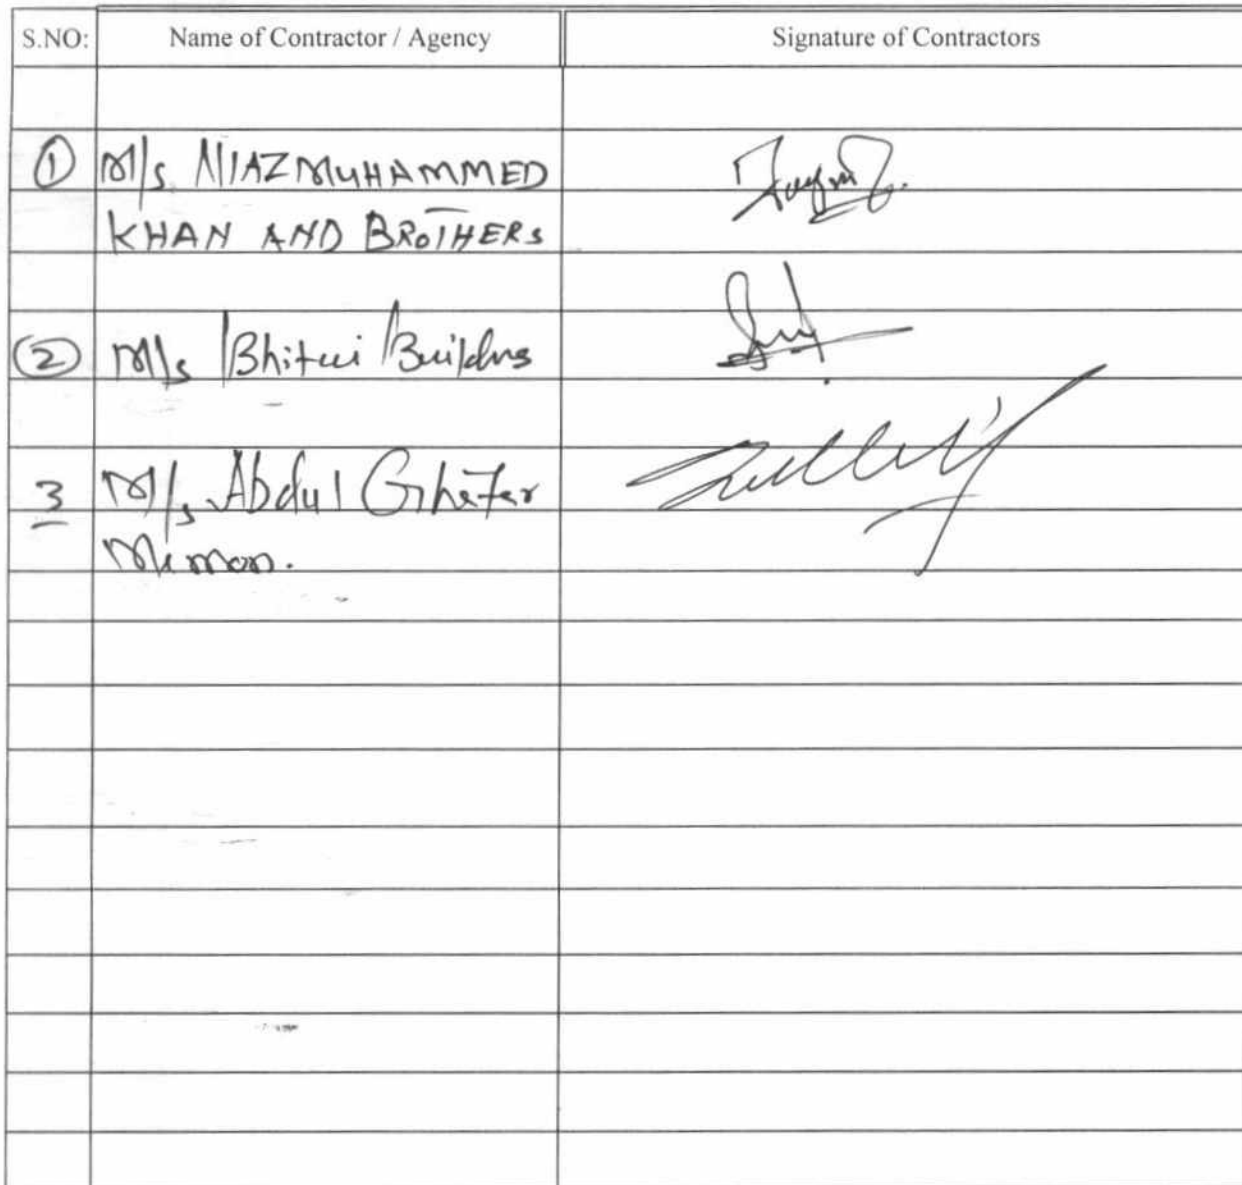 S.NO: Name of Contractor / Agency Signature of Contractors
1 M/s. NIAZ MUHAMMED
KHAN AND BROTHERS
2 M/s Bhitui Builders
3 M/s Abdul Ghafar
Memon.